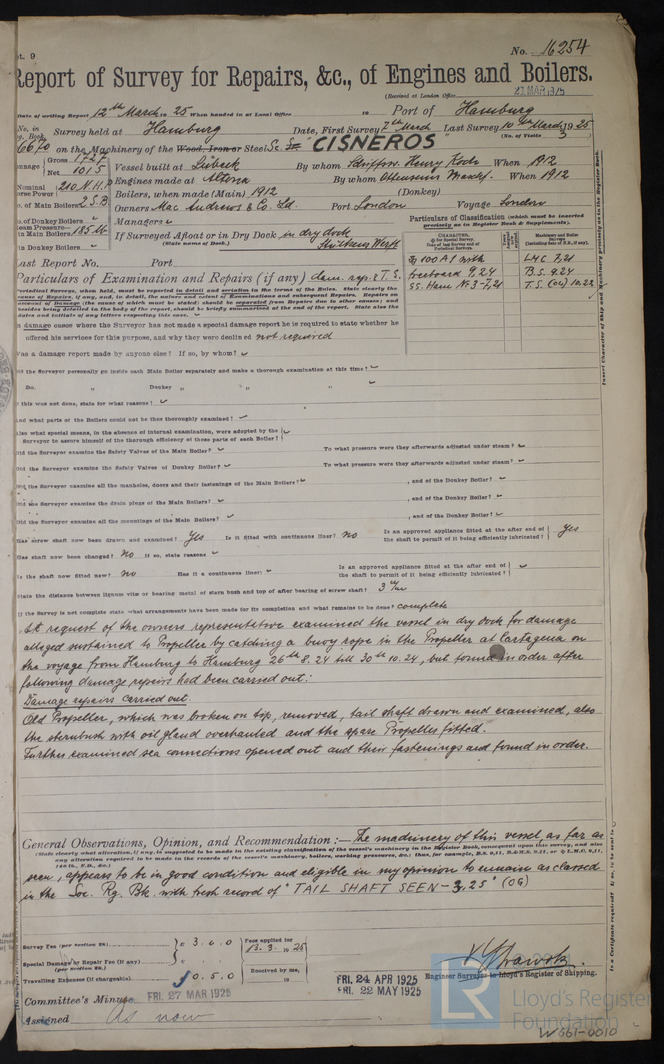 pt. 9
No. 16254
Report of Survey for Repairs, &c., of Engines and Boilers.
(Received at London Office
27 MAR 1925
Date of writing Report 12th March 1925 When handed in at Local Office 19 Port of Hamburg
No. in Survey held at Hamburg Date, First Survey 7th March Last Survey 10th March 1925
Reg. Book. (No. of Visits 3 )
6670 on the Machinery of the Wood, Iron or Steel Sc. S. "CISNEROS"
Tonnage Gross 1727
Net 1015
Vessel built at Lübeck By whom Schiffsw. Henry Koch When 1912
Nominal Horse Power 210 N.H.P. Engines made at Altona By whom Ottensener Maschf. When 1912
No. of Main Boilers 2 S.B. Boilers, when made (Main) 1912 (Donkey)
Owners Mac Andrews & Co. Ld. Port London Voyage London
No. of Donkey Boilers Managers
Steam Pressure in Main Boilers 185 lb If Surveyed Afloat or in Dry Dock in dry dock
(State name of Dock.) Stülcken Werft
in Donkey Boilers
Particulars of Classification (which must be inserted
precisely as in Register Book & Supplements).
100 A1 with LMC 7,21
freeboard 9,24 B.S. 9.24
SS. Ham. No. 3-7,21 T.S. (CL) 10.22
Last Report No. Port
Particulars of Examination and Repairs (if any) dam. rep. & T.S.
In damage cases where the Surveyor has not made a special damage report he is required to state whether he
offered his services for this purpose, and why they were declined not required
Was a damage report made by anyone else? If so, by whom?
Did the Surveyor personally go inside each Main Boiler separately and make a thorough examination at this time?
Do. " Donkey " " "
If this was not done, state for what reasons?
And what parts of the Boilers could not be thus thoroughly examined?
Also what special means, in the absence of internal examination, were adopted by the
Surveyor to assure himself of the thorough efficiency of those parts of each Boiler?
Did the Surveyor examine the Safety Valves of the Main Boiler? To what pressure were they afterwards adjusted under steam?
Did the Surveyor examine the Safety Valves of Donkey Boiler? To what pressure were they afterwards adjusted under steam?
Did the Surveyor examine all the manholes, doors and their fastenings of the Main Boilers? , and of the Donkey Boiler?
Did the Surveyor examine the drain plugs of the Main Boilers? , and of the Donkey Boiler?
Did the Surveyor examine all the mountings of the Main Boilers? , and of the Donkey Boiler?
Has screw shaft now been drawn and examined? Yes Is it fitted with continuous liner? no Is an approved appliance fitted at the after end of the shaft to permit of it being efficiently lubricated? Yes
Has shaft now been changed? No If so, state reasons
Is the shaft now fitted new? no Has it a continuous liner? Is an approved appliance fitted at the after end of the shaft to permit of it being efficiently lubricated?
State the distance between lignum vitæ or bearing metal of stern bush and top of after bearing of screw shaft? 3 m/m
If the Survey is not complete state what arrangements have been made for its completion and what remains to be done? complete
At request of the owners representative examined the vessel in dry dock for damage
alleged sustained to Propeller by catching a buoy rope in the Propeller at Cartagena on
the voyage from Hamburg to Hamburg 26th 8.24 till 30th 10.24, but found in order after
following damage repairs had been carried out.:
Damage repairs carried out.
Old Propeller, which was broken on top, removed, tail shaft drawn and examined, also
the sternbush with oil gland overhauled and the spare Propeller fitted.
Further examined sea connections opened out and their fastenings and found in order.
General Observations, Opinion, and Recommendation :— The machinery of this vessel as far as
seen, appears to be in good condition and eligible in my opinion to remain as classed
in the Soc. Rg. Bk. with fresh record of "TAIL SHAFT SEEN - 3,25" (OG)
Survey Fee (per section 28) £ 3.0.0 Fees applied for 13.3.1925
Special Damage or Repair Fee (if any) (per section 28.)
Travelling Expenses (if chargeable) 0.5.0 Received by me, 19
Engineer Surveyor to Lloyd's Register of Shipping.
FRI. 24 APR 1925
FRI. 22 MAY 1925
Committee's Minute FRI. 27 MAR 1925
Assigned As now
LR Lloyd's Register
Foundation
W661-0010